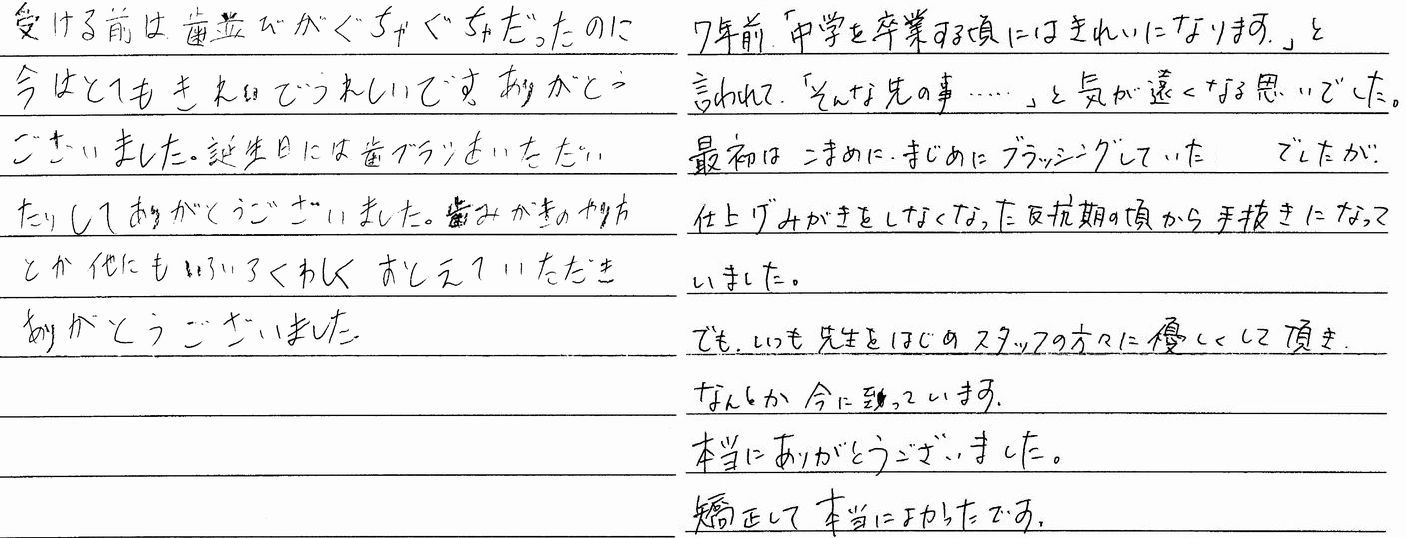 受ける前は歯並びがぐちゃぐちゃだったのに
今はとてもきれいでうれしいです。ありがとう
ございました。誕生日には歯ブラシをいただい
たりしてありがとうございました。歯みがきのやり方
とか他にもいろいろくわしくおしえていただき
ありがとうございました。
7年前、「中学を卒業する頃にはきれいになります。」と
言われて、「そんな先の事……」と気が遠くなる思いでした。
最初は こまめに、まじめにブラッシングしていた でしたが、
仕上げみがきをしなくなった反抗期の頃から手抜きになって
いました。
でも、いつも先生をはじめスタッフの方々に優しくして頂き、
なんとか今に至っています。
本当にありがとうございました。
矯正して本当によかったです。